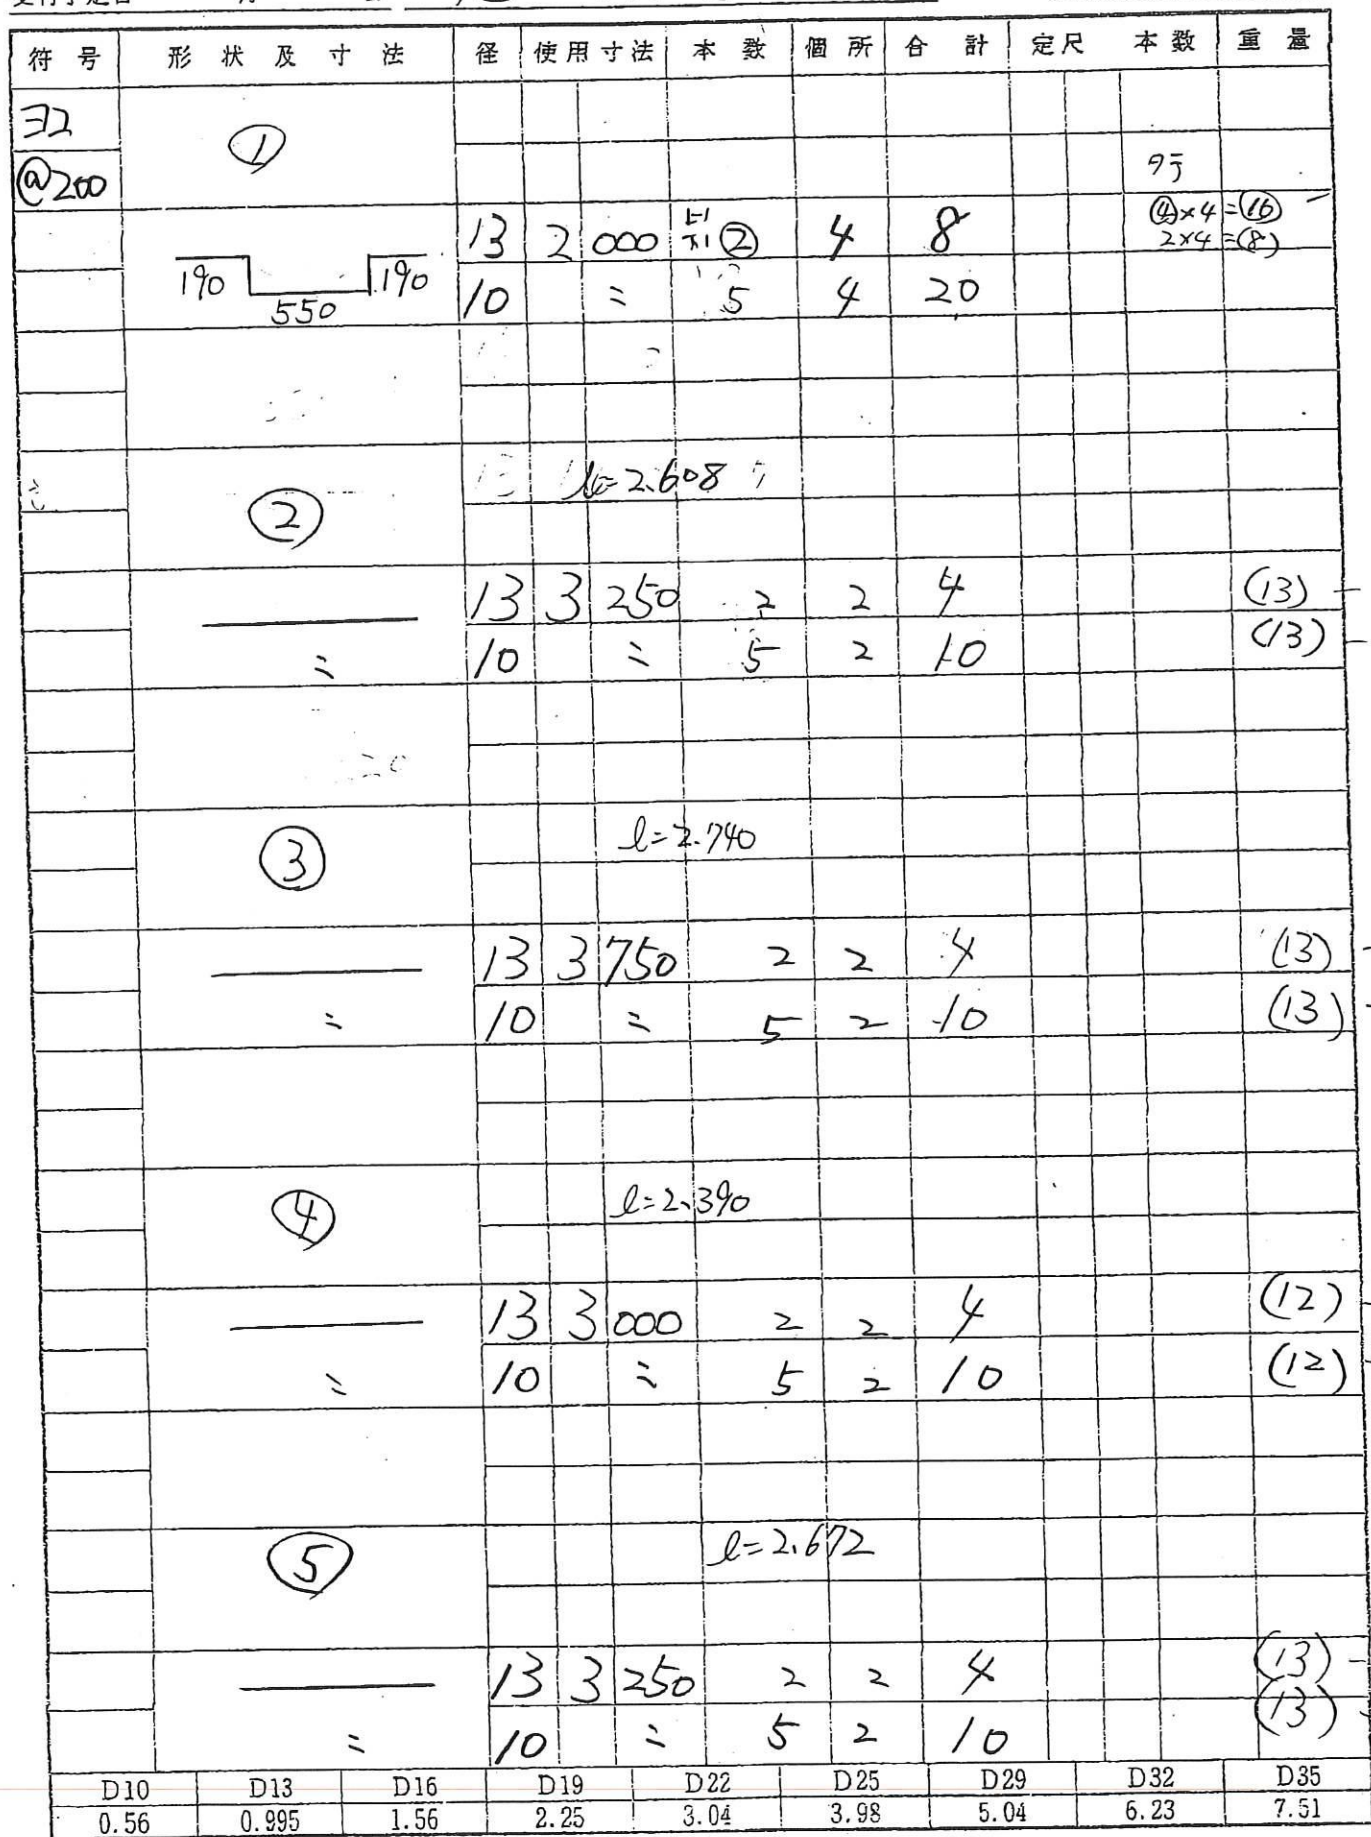 符号 形状及寸法 径 使用寸法 本数 個所 合計 定尺 本数 重量
ヨコ
①
@200
タテ
13 2 000 ② 4 8 ④×4=⑯
2×4=(8)
190 550 190
10 〃 5 4 20
② l=2.608
13 3 250 2 2 4 (13)
〃 10 〃 5 2 10 (13)
③ l=2.740
13 3 750 2 2 4 (13)
〃 10 〃 5 2 10 (13)
④ l=2.390
13 3 000 2 2 4 (12)
〃 10 〃 5 2 10 (12)
⑤ l=2.672
13 3 250 2 2 4 (13)
〃 10 〃 5 2 10 (13)
D10 D13 D16 D19 D22 D25 D29 D32 D35
0.56 0.995 1.56 2.25 3.04 3.98 5.04 6.23 7.51